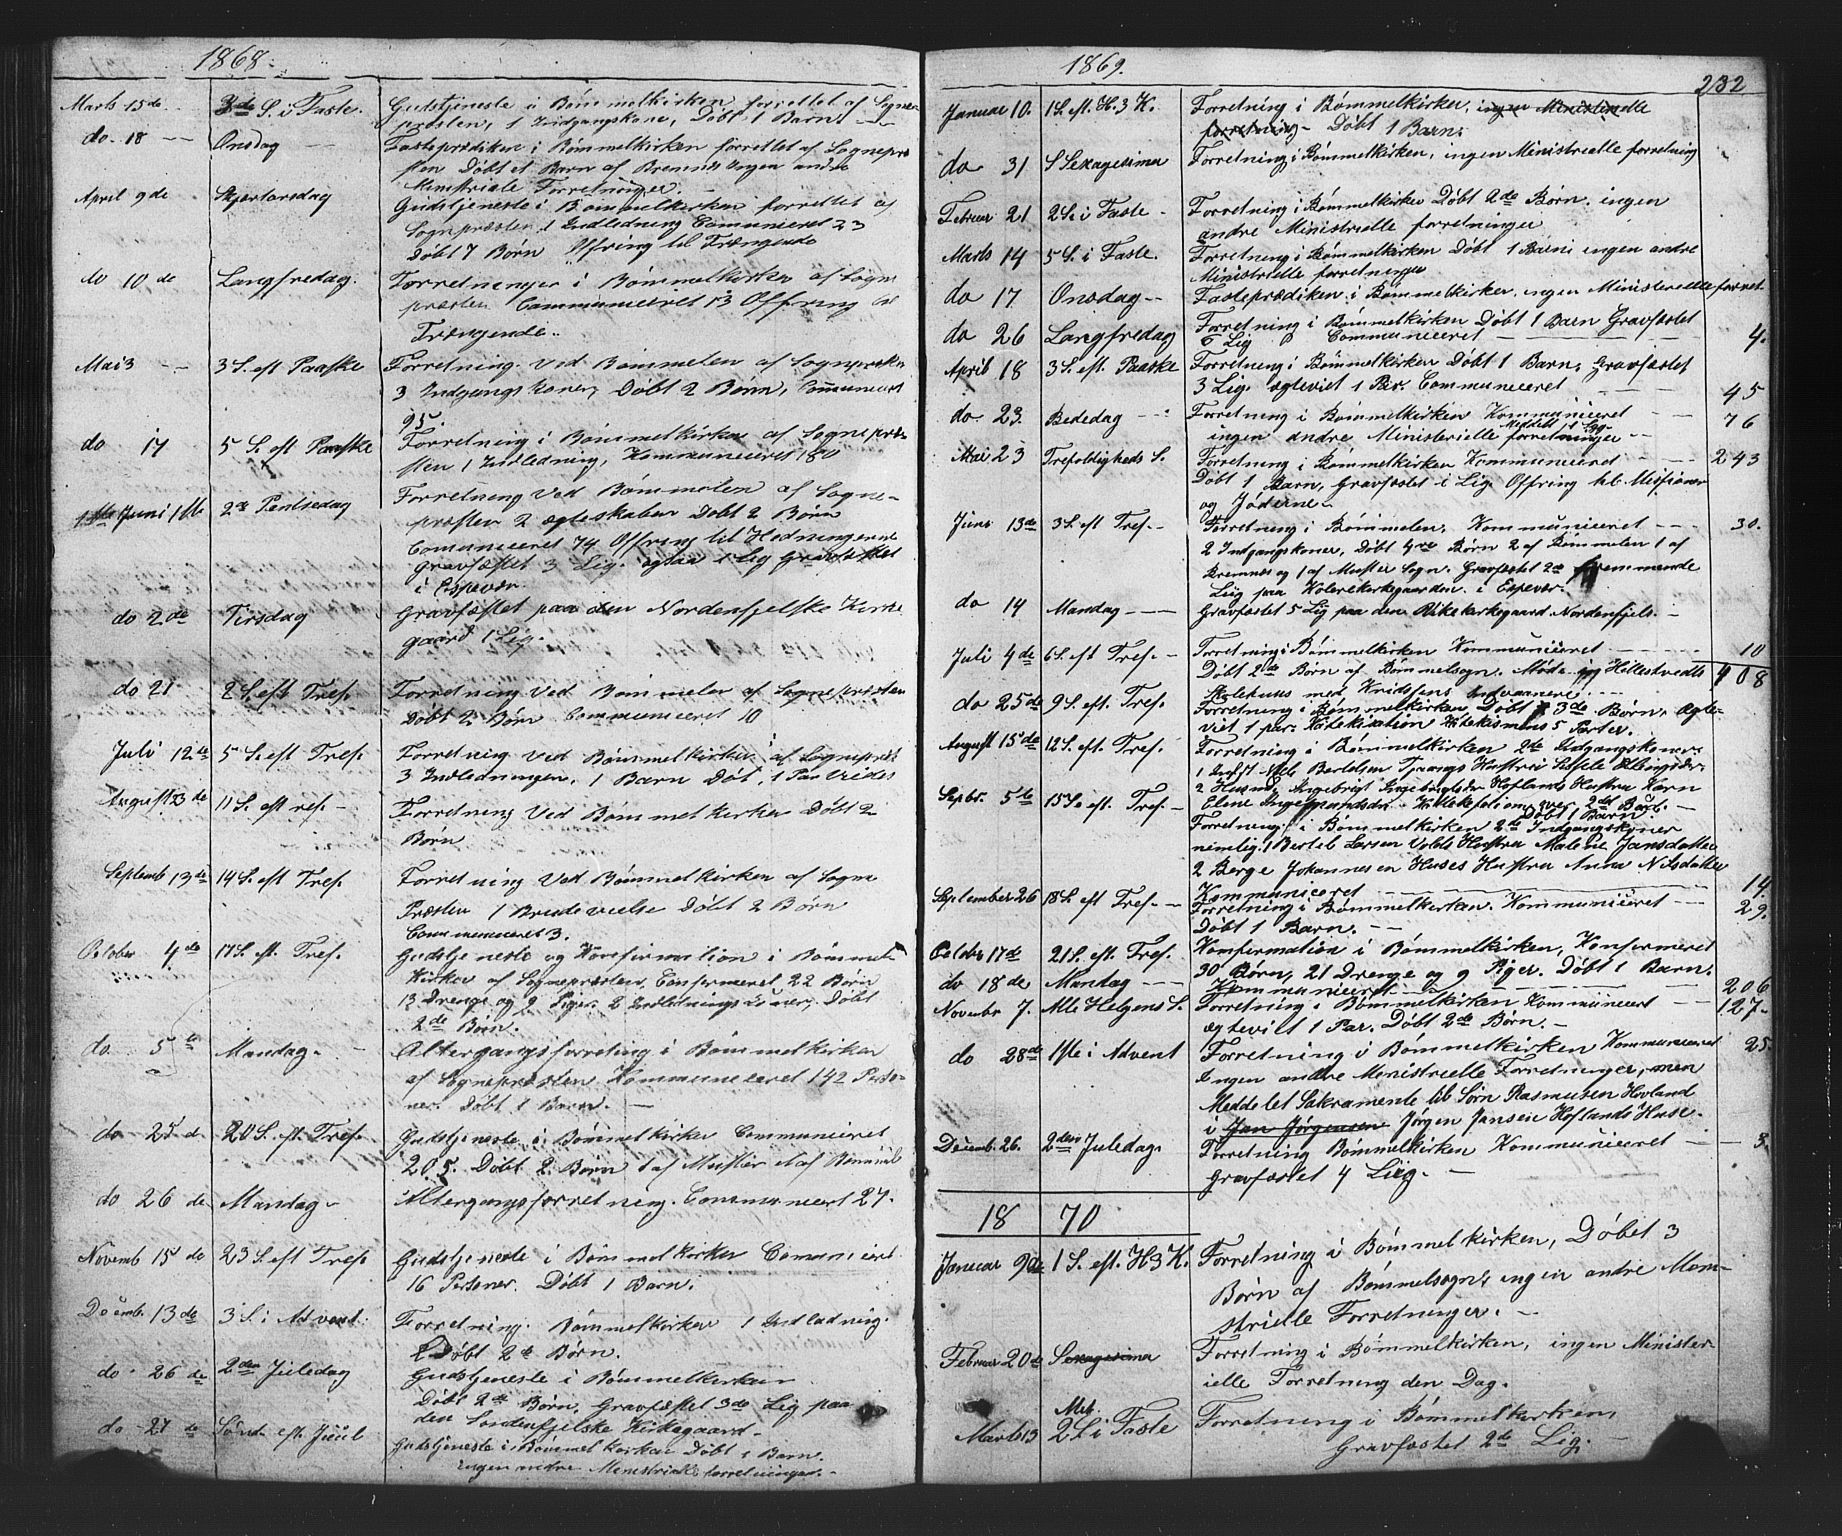 1868.
Marts 15de 3de S. i Faste. Gudstjeneste i Bømmelkirken forrettet af Sogne-
præsten, 1 Indgangskone, Døbt 1 Barn.
do. 18 Onsdag Fasteprædiken i Bømmelkirken forrettet af Sognepræ-
sten Døbt et Barn af Bremnes Ingen andre
Menstriele Forretninger.
April 9de Skjertorsdag Gudstjeneste i Bømmelkirken forrettet af
Sognpræsten 1 Indledning Comunieret 23
Døbt 7 Børn Offring til Trængende
do 10de Langfredag. Forretninger i Bømmelkirken af Sogne
præsten Communiceret 13 Offring til
Trængende..
Mai 3 3 S. eft Paaske Forretning ved Bømmelen af Sognepræsten
3 Indgangskoner, Døbt 2 Børn, Communiceret
95.
do 17 5 S. eft Paaske Forretning i Bømmelkirken af Sognepræ-
sten 1 Indledning, Kommuniceret 180
1ste Juni 2den Pentsedag Forretning ved Bømmelen af Sogne-
præsten 2 ægteskaber Døbt 2 Børn
Comuniceret 74 Offring til Hedningerne
Gravfæstet 3 Lig. ogsaa 1 Lig Gravfæstet
i Espevær.
do 2de Tirsdag Gravfæstet paa den Nordenfjelske Kirke
gaard 1 Lig.
do 21 2 S. eft Tref. Forretning ved Bømmelen af Sognepræsten
Døbt 2 Børn Communiceret 10
Juli 12te 5 S. eft Tref. Forretning ved Bømmelkirken af Sognepræst
3 Indledninger, 1 Barn Døbt, 1 Par Viedes
August 23de 11 S. eft ref. Forretning Ved Bømmelkirken Døbt 2
Børn
Septemb 13de 14 S. eft Tref. Forretning Ved Bømmelkirken af Sogne
Præsten 1 Brudevielse Døbt 2 Børn
Communiceret 3.
October 4de 17 S. eft. Tref. Gudstjeneste og Konfirmation i Bømmel
Kirken af Sognepræsten, Confirmeret 22 Børn
13 Drenge og 9 Piger. 2 Indledningskoner, Døbt
2de Børn.
do. 5te Mandag. Altergangsforretning i Bømmelkirken
af Sognepræsten Kommuniceret 142 Perso-
ner. Døbt 1 Barn.
do 25de 20 S. eft Tref. Gudstjeneste i Bømmelkirken Communiceret
205. Døbt 2 Børn 1 af Moster et af Bømmel
do 26de Mandag Altergangsforretning. Communiceret 27.
Novemb 15de 23 S. eft Tref. Gudstjeneste i Bømmelkirken Comuniceret
16 Personer. Døbt 1 Barn.
Decemb. 13de 3 S. i Advent. Forretning. Bømmelkirken 1 Indledning.
Døbt 2de Børn.
do. 26de 2den Juledag Gudstjeneste i Bømmelkirken
Døbt 2de Børn, Gravfæstet 3de Lig paa
den Søndenfjelske Kirkegaard.
do 27de Sønd. eft Juul Gudstjeneste i Bømmelkirken Døbt 1 Barn.
ingen andre Menistrielle forretninger.
1869.
232
Januar 10. 1 S. eft. H. 3 K. Forretning i Bømmelkirken, ingen Ministrielle
forretning Døbt 1 Barn.
do 31 S Sexagesima Forretning i Bømmelkirken, ingen Ministrielle forretning
Februar 21 2 S. i Faste Forretning i Bømmelkirke Døbt 2de Børn. ingen
andre Ministrielle forretninger
Marts 14 5 S. i Faste. Forretning i Bømmelkirken Døbt 1 Barn ingen andre
Ministrielle forretninger
do 17 Onsdag Fasteprædiken i Bømmelkirken ingen Ministerielle forret.
do 26 Langfredag Forretning i Bømmelkirken Døbt 1 Barn Gravfæstet
Lig Communiceret 4.
April 18 3 S. eft. Paaske Forretning i Bømmelkirken Døbt 1 Barn, Gravfæstet
3 Lig. ægteviet 1 Par. Communiceret 45
do. 23. Bededag Forretning i Bømmelkirken Kommuniceret 76
ingen andre Ministerielle forretninger
Mai 23 Trefoldigheds S. Forretning i Bømmelkirken Kommuniceret 243
Døbt 1 Barn, Gravfæstet 1 Lig Offring til Missionen
og Jøderne
Juni 13de 3 S. eft Tref. Forretning i Bømmelen, Kommuniceret 30.
2 Indgangskoner, Døbt 4re Børn 2 af Bømmelen 1 af
Bremnes og 1 af Moster Sogn. Gravfæstet 2de fremmende
Lig paa Kolerakirkegaarden i Espevær.
do 14 Mandag Gravfæstet 5 Lig paa den Kirkegaard Nordenfjels.
Juli 4de 6 S. eft Tref. Forretning i Bømmelkirken Kommuniceret 10
Døbt 2de Børn af Bømmelsogn. Møde Hillestvedts 408
Skolehuus med
do 25de 9 S. eft. Tref. Forretning i Bømmelkirken Døbt 3de Børn, Ægte-
viet 1 par. Katekisation Katekismens 5 Parter.
August 15de 12 S. eft. Tref. Forretning i Bømmelkirken 2de Indgangskoner.
1 Indst Nils Bertelsen Hustru
2 Husmd Ingebrigt Ingebrigtsen Hoflands Hustru Karn
Elene
Døbt 1 Barn
Sepbr. 5te 15 S. eft. Tref. Forretning i Bømmelkirken 2de Indgangskoner
nemlig. 1 Bertel Larsen Volds Hustru Malene Jansdatter
2 Berge Johannesen Huses Hustru Anna Nilsdatter
Kommuniceret 14.
September 26 18 S. eft Tref. Forretning i Bømmelkirken. Kommuniceret 29.
Døbt 1 Barn.
Octobr 17de 21 S. eft Tref. Konfirmation i Bømmelkirken, Konfirmeret
30 Børn, 21 Drenge og 9 Piger. Døbt 1 Barn.
do 18de Mandag Kommuniceret 206
Novembr 7. Alle Helgens S. Forretning i Bømmelkirken Kommuniceret 127.
Ægtevilt 1 Par. Døbt 2de Børn.
do 28de 1ste i Advent Forretning i Bømmelkirken Kommuniceret 25.
Ingen andre Menistrielle Forretninger, men
Meddelet Sakramente til Sørn Rasmusen Hovland
i Jan Jørgensen Jørgen Jansen Hoflands Huse.
Decemb. 26. 2den Juledag. Forretning Bømmelkirken Kommuniceret 3.
Gravfæstet 4 Lig.
1870
Januar 9de 1 S. eft. H 3 K. Forretning i Bømmelkirken, Døbet 3
Børn af Bømmelsogn, ingen andre Mini-
strielle Forretninger.
Februar 20de Sexagesima Forretning i Bømmelkirken, ingen Minister-
ielle Forretning den Dag.
Marts 13 2 S. i Faste Forretning i Bømmelkirken,
Gravfæstet 2de Lig.